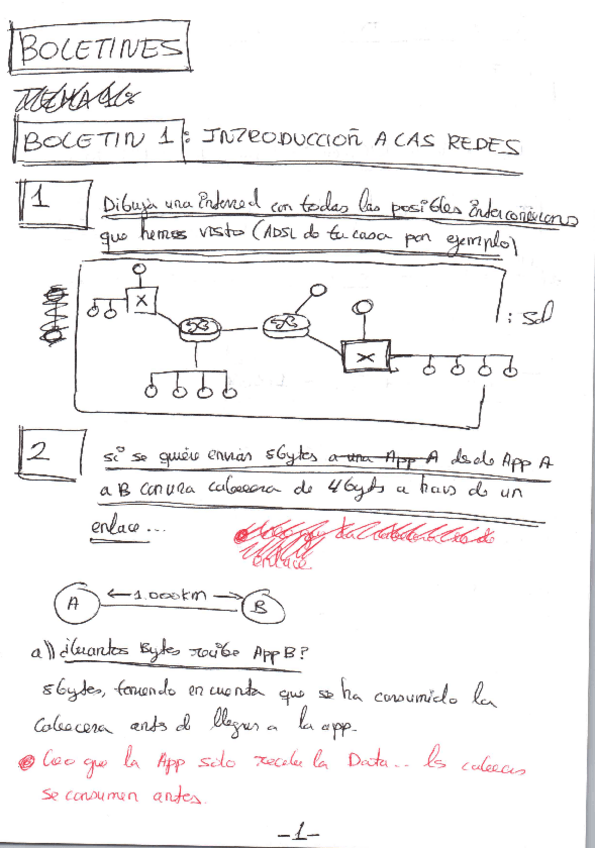 BOLETINES
BOLETIN 1: INTRODUCCIOÑ A LAS REDES
1 Dibuja una interred con todas las posibles interconexiones
que hemos visto (ADSL de tu casa por ejemplo)
X
: sol
X
2 si se quiere enviar 5bytes a una App A desde App A
a B con una cabecera de 4bytes a traves de un
enlace...
enlace
A 1.000km B
a) ¿Cuantos Bytes recibe App B?
5bytes, teniendo en cuenta que se ha consumido la
cabecera antes de llegar a la app.
Creo que la App solo recibe la Data... las cabeceras
se consumen antes.
-1-